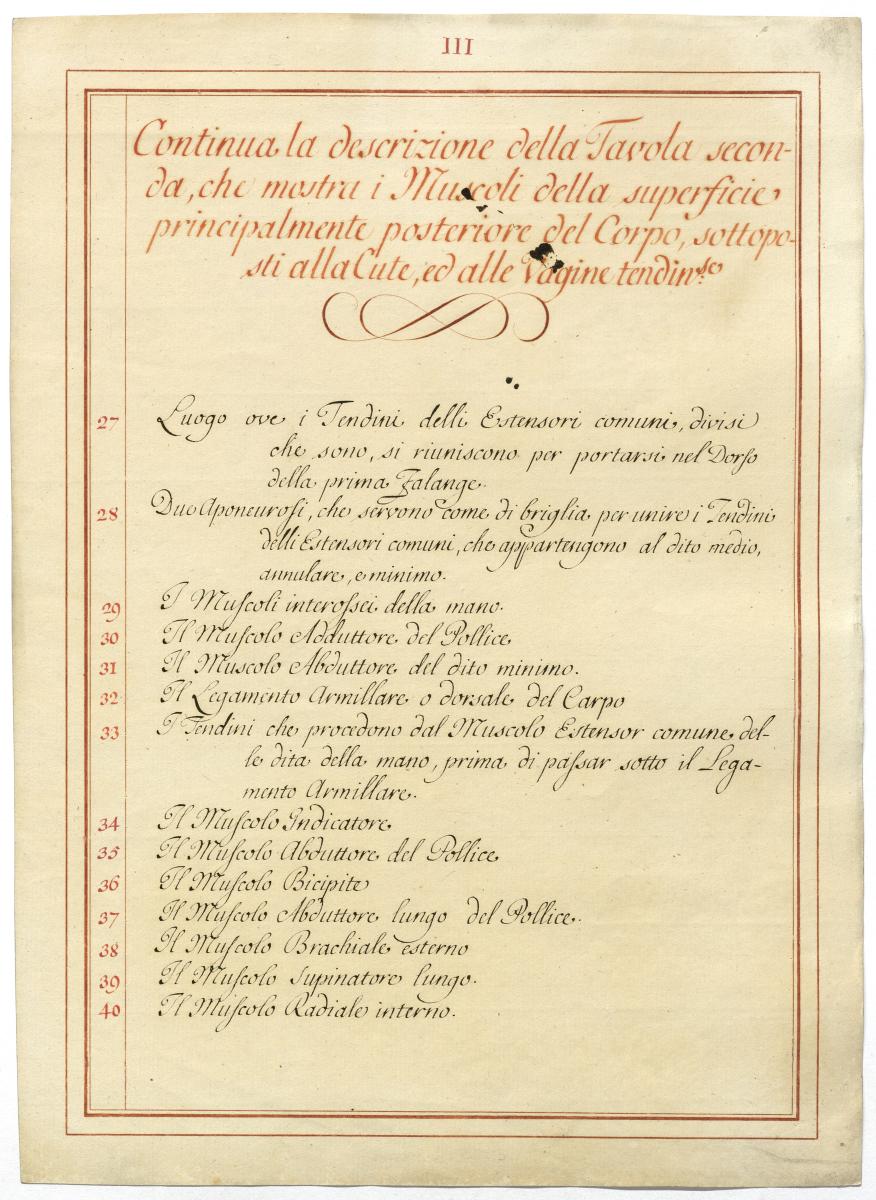 III
Continua la descrizione della Tavola secon-
da, che mostra i Muscoli della superficie
principalmente posteriore del Corpo, sottopo-
sti alla Cute, ed alle Vagine tendin.se
27 Luogo ove i Tendini delli Estensori comuni, divisi
che sono, si riuniscono per portarsi nel Dorſo
della prima Falange.
28 Due Aponeuroſi, che servono come di briglia per unire i Tendini
delli Estensori comuni, che appartengono al dito medio,
annulare, e minimo.
29 I Muſcoli interoſsei della mano.
30 Il Muſcolo Adduttore del Pollice
31 Il Muscolo Abduttore del dito minimo.
32 Il Legamento Armillare o dorsale del Carpo
33 I Tendini che procedono dal Muscolo Estensor comune del-
le dita della mano, prima di paſsar sotto il Lega-
mento Armillare.
34 Il Muſcolo Indicatore
35 Il Muſcolo Abduttore del Pollice
36 Il Muſcolo Bicipite
37 Il Muſcolo Abduttore lungo del Pollice.
38 Il Muſcolo Brachiale esterno
39 Il Muſcolo Supinatore lungo.
40 Il Muſcolo Radiale interno.